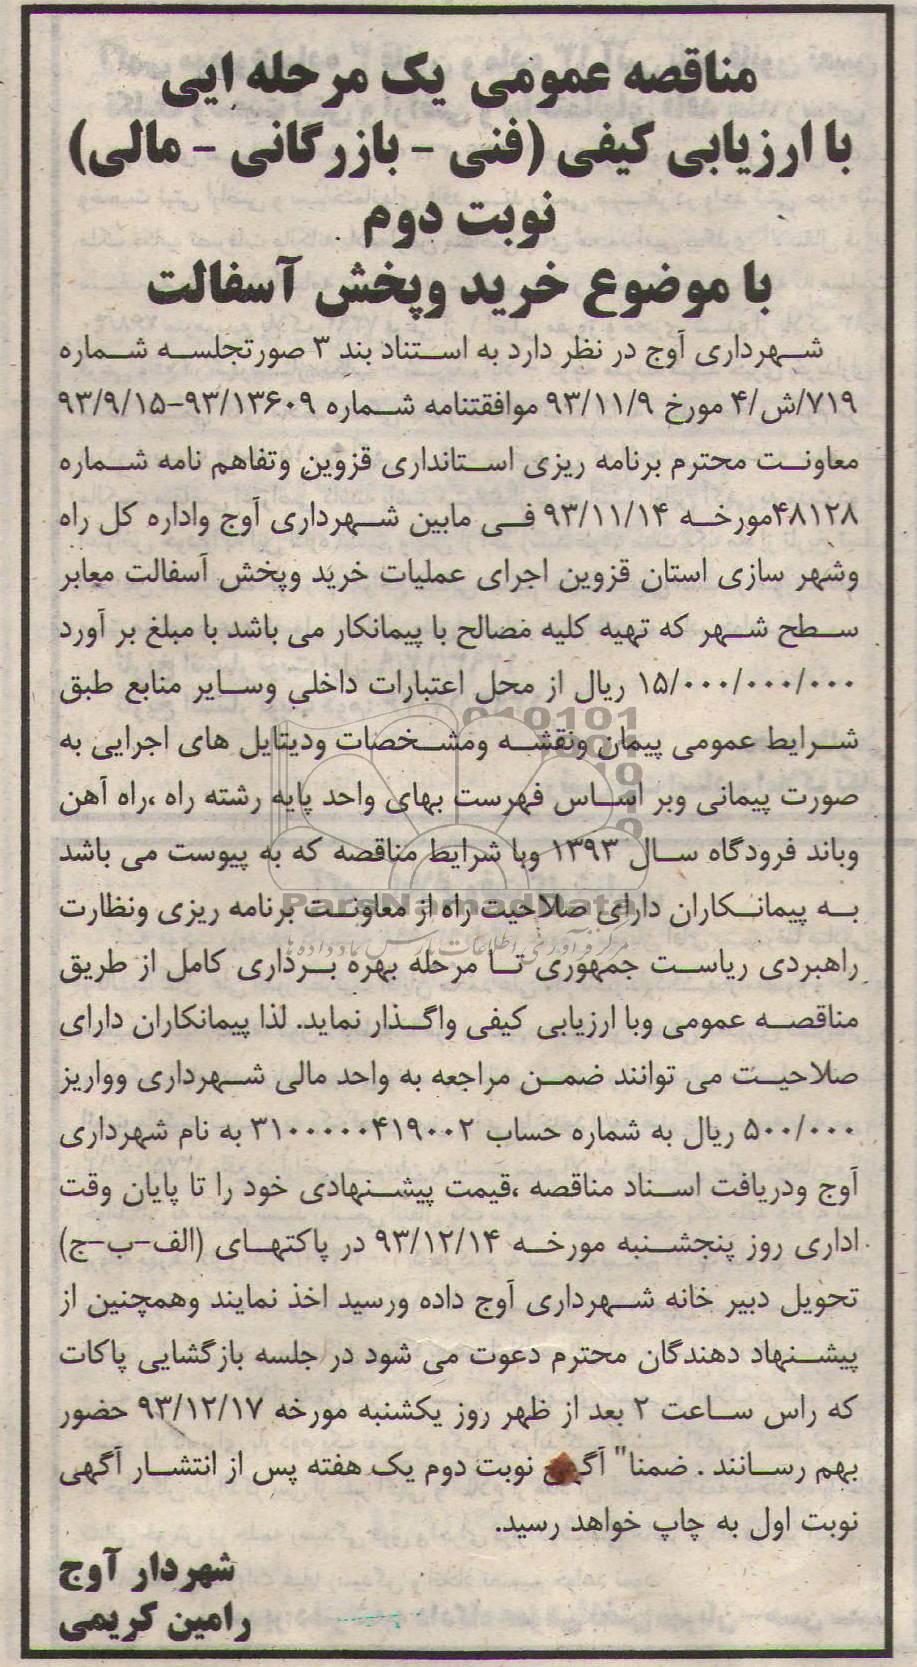 مناقصه عمومی یک مرحله ایی
با ارزیابی کیفی (فنی - بازرگانی - مالی)
نوبت دوم
با موضوع خرید وپخش آسفالت
شهرداری آوج در نظر دارد به استناد بند ۳ صورتجلسه شماره
۷۱۹/ش/۴ مورخ ۹۳/۱۱/۹ موافقتنامه شماره ۹۳/۱۳۶۰۹-۹۳/۹/۱۵
معاونت محترم برنامه ریزی استانداری قزوین وتفاهم نامه شماره
۴۸۱۲۸مورخه ۹۳/۱۱/۱۴ فی مابین شهرداری آوج واداره کل راه
وشهر سازی استان قزوین اجرای عملیات خرید وپخش آسفالت معابر
سطح شهر که تهیه کلیه مصالح با پیمانکار می باشد با مبلغ بر آورد
۱۵/۰۰۰/۰۰۰/۰۰۰ ریال از محل اعتبارات داخلی وسایر منابع طبق
شرایط عمومی پیمان ونقشه ومشخصات ودیتایل های اجرایی به
صورت پیمانی وبر اساس فهرست بهای واحد پایه رشته راه ،راه آهن
وباند فرودگاه سال ۱۳۹۳ وبا شرایط مناقصه که به پیوست می باشد
به پیمانکاران دارای صلاحیت راه از معاونت برنامه ریزی ونظارت
راهبردی ریاست جمهوری تا مرحله بهره برداری کامل از طریق
مناقصه عمومی وبا ارزیابی کیفی واگذار نماید. لذا پیمانکاران دارای
صلاحیت می توانند ضمن مراجعه به واحد مالی شهرداری وواریز
۵۰۰/۰۰۰ ریال به شماره حساب ۳۱۰۰۰۰۰۴۱۹۰۰۲ به نام شهرداری
آوج ودریافت اسناد مناقصه ،قیمت پیشنهادی خود را تا پایان وقت
اداری روز پنجشنبه مورخه ۹۳/۱۲/۱۴ در پاکتهای (الف-ب-ج)
تحویل دبیر خانه شهرداری آوج داده ورسید اخذ نمایند وهمچنین از
پیشنهاد دهندگان محترم دعوت می شود در جلسه بازگشایی پاکات
که راس ساعت ۲ بعد از ظهر روز یکشنبه مورخه ۹۳/۱۲/۱۷ حضور
بهم رسانند . ضمنا" آگهی نوبت دوم یک هفته پس از انتشار آگهی
نوبت اول به چاپ خواهد رسید.
شهردار آوج
رامین کریمی
ParsNamadData
مرکز فرآوری اطلاعات پارس نماد داده‌ها